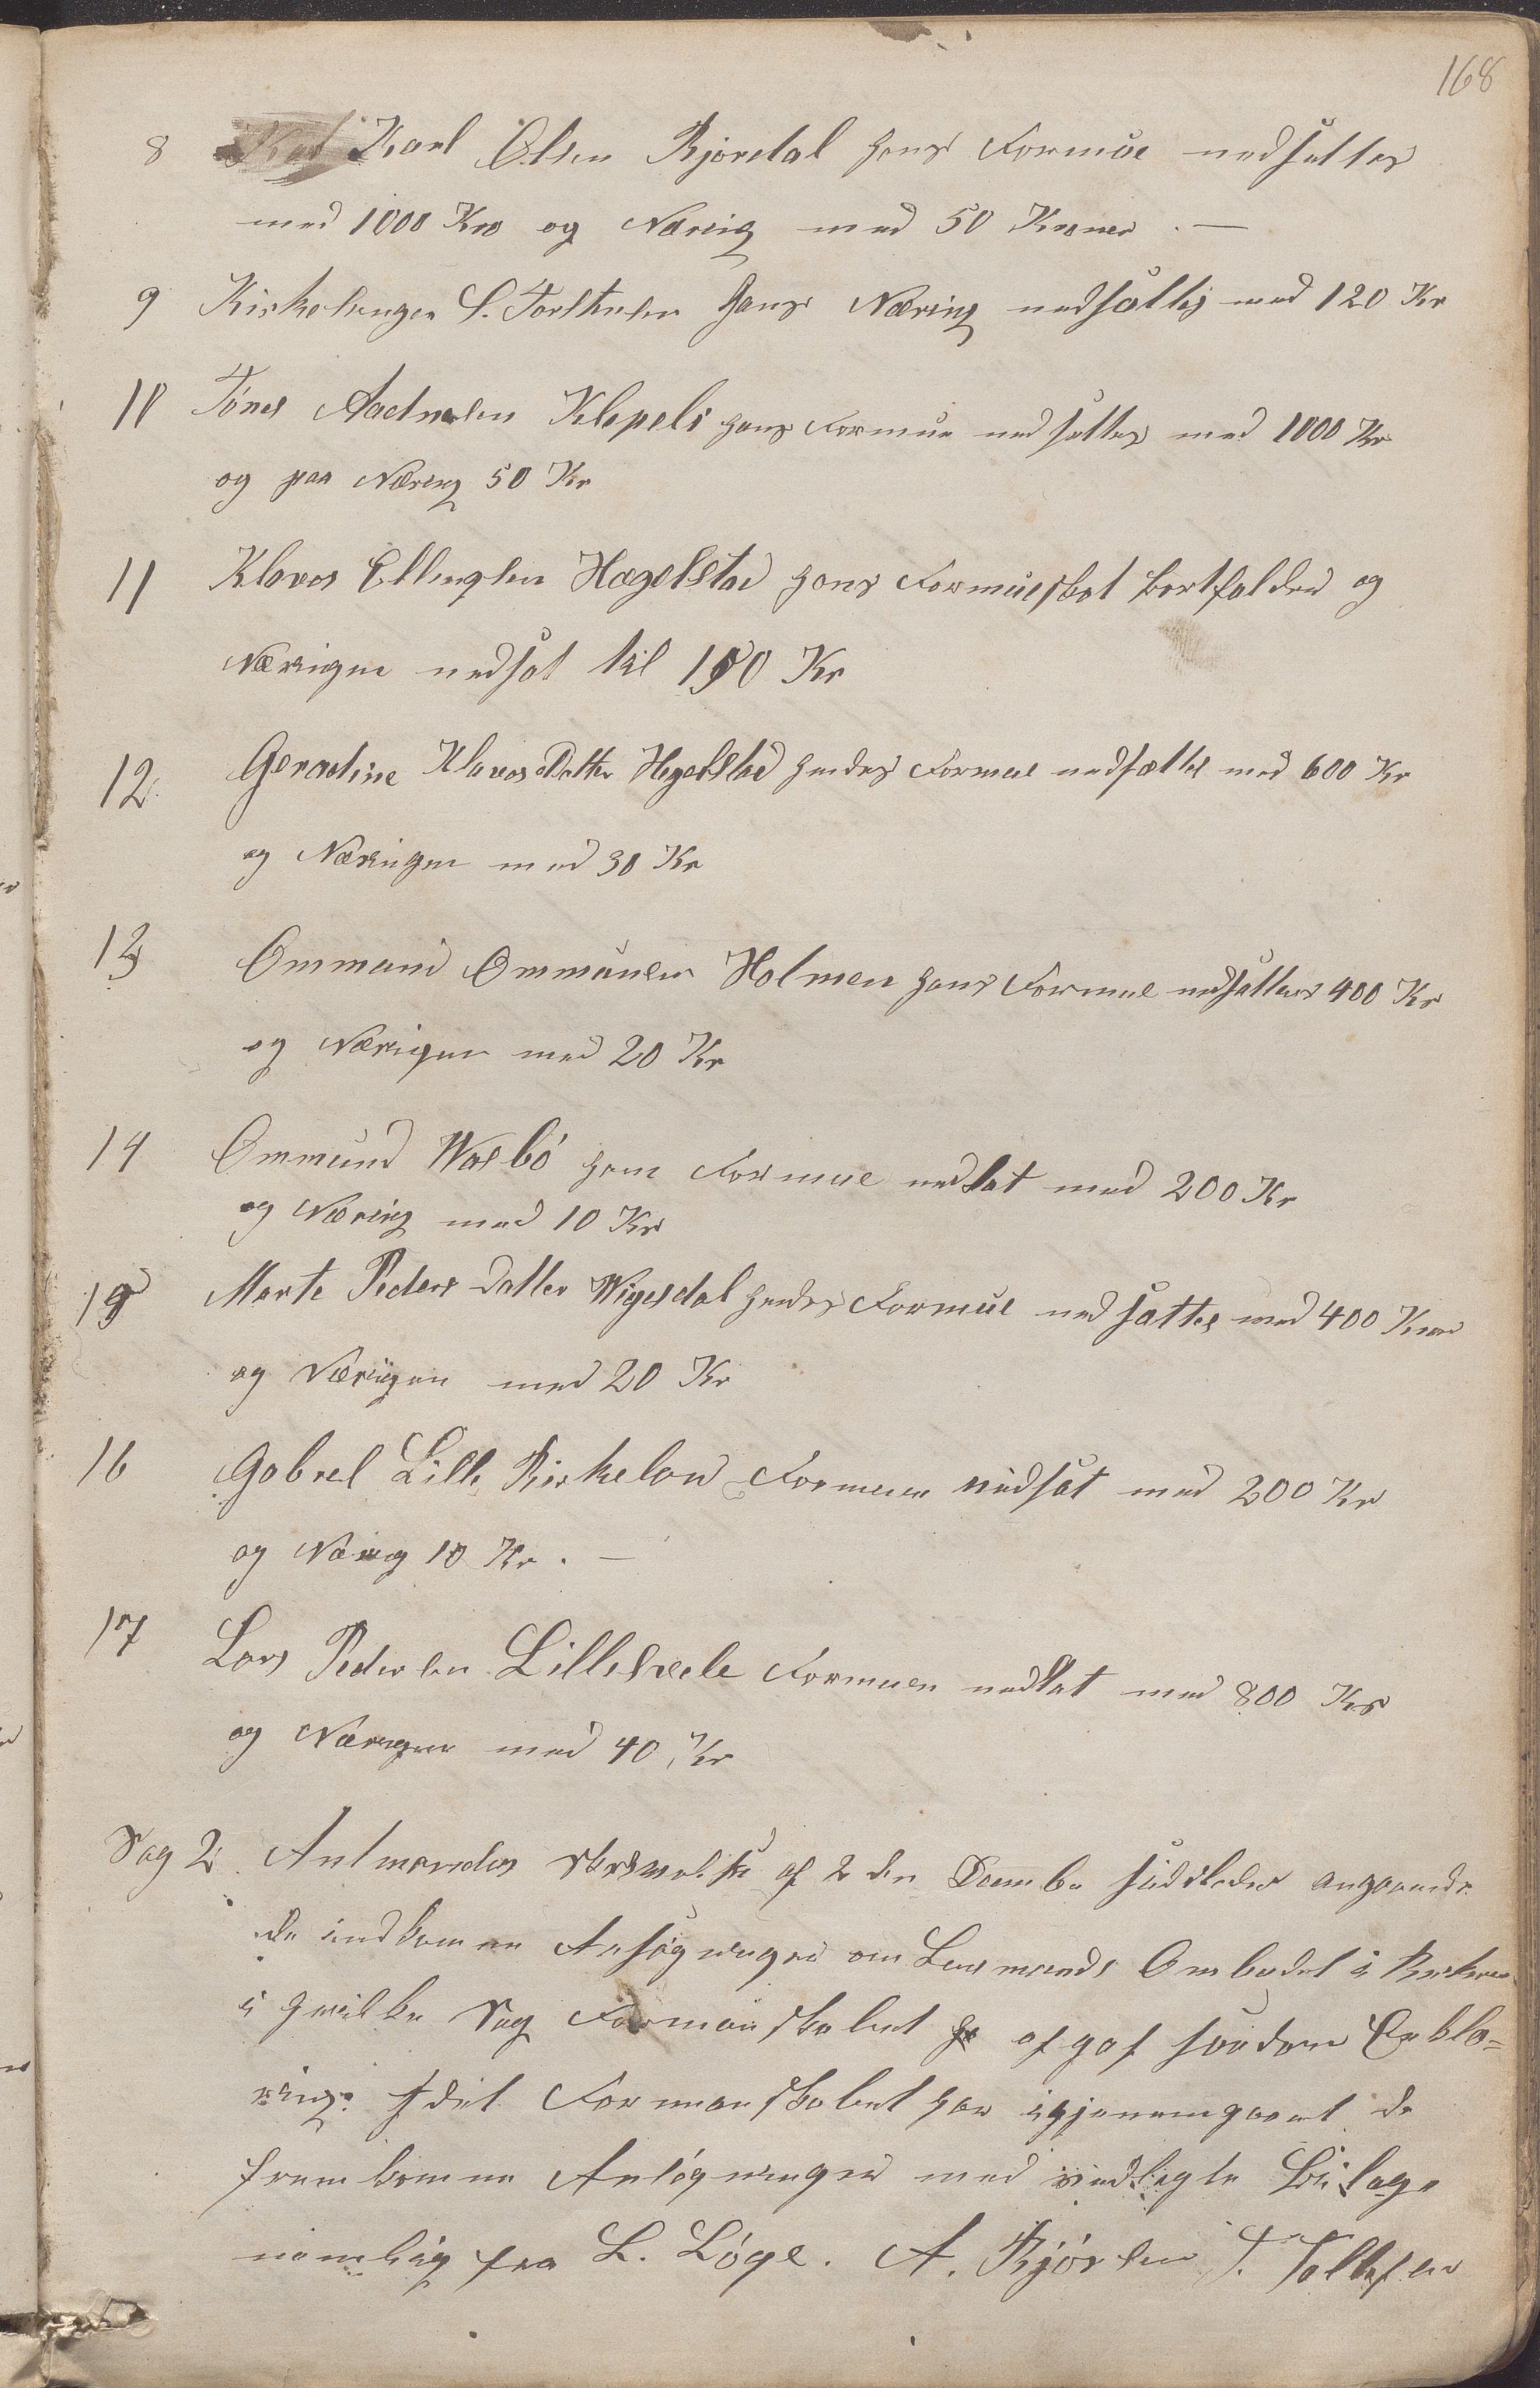 168
8 Karl Olsen Bjordal hans Formue nedsættes
med 1000 Kro og Nærig med 50 Kroner . —
9 Kirkesanger S. Torstensen hans Næring nedsættes med 120 Kr
10 Tónes Aadnesen Klepeli hans Formue nedsættes med 1000 Kr
og paa Næring 50 Kr
11 Klaves Ellingsen Hægelstad hans Formueskat bortfalder og
Nærigen nedsat til 150 Kr
12 Geradine Klavesdatter Hegelstad hendes Formue nedsættes med 600 Kr
og Næringen med 30 Kr
13 Ommund Ommunsen Holmen hans Formue nedsættes 400 Kr
og Nærigen med 20 Kr
14 Ommund Wasbó hans Formue nedsat med 200 Kr
og Næring med 10 Kr
15 Marte Peders datter Wigesdal hendes Formue nedsættes med 400 Kron
og Nærigen med 20 Kr
16 Gabrel Lille Birkeland Formuen nedsat med 200 Kr
og Nærig 10 Kr . —
17 Lars Pedersen Lillehrele Formuen nedsat med 800 Kr
og Nærigen med 40 Kr
Sag 2 Amtmandens skrivelse af 2den Decembe sidstleden angaaende
de indkomne Ansøgninger om Lensmands Ombudet i
i hvilke Sag Formanskabet afgaf saadan Erklæ=
ring: Idet Formanskabet har igjenemgaaet de
fremkomne Ansógninger med vedlagte Bilage
nemlig fra L. Lóge. A. Bjórsen T. Tollefsen